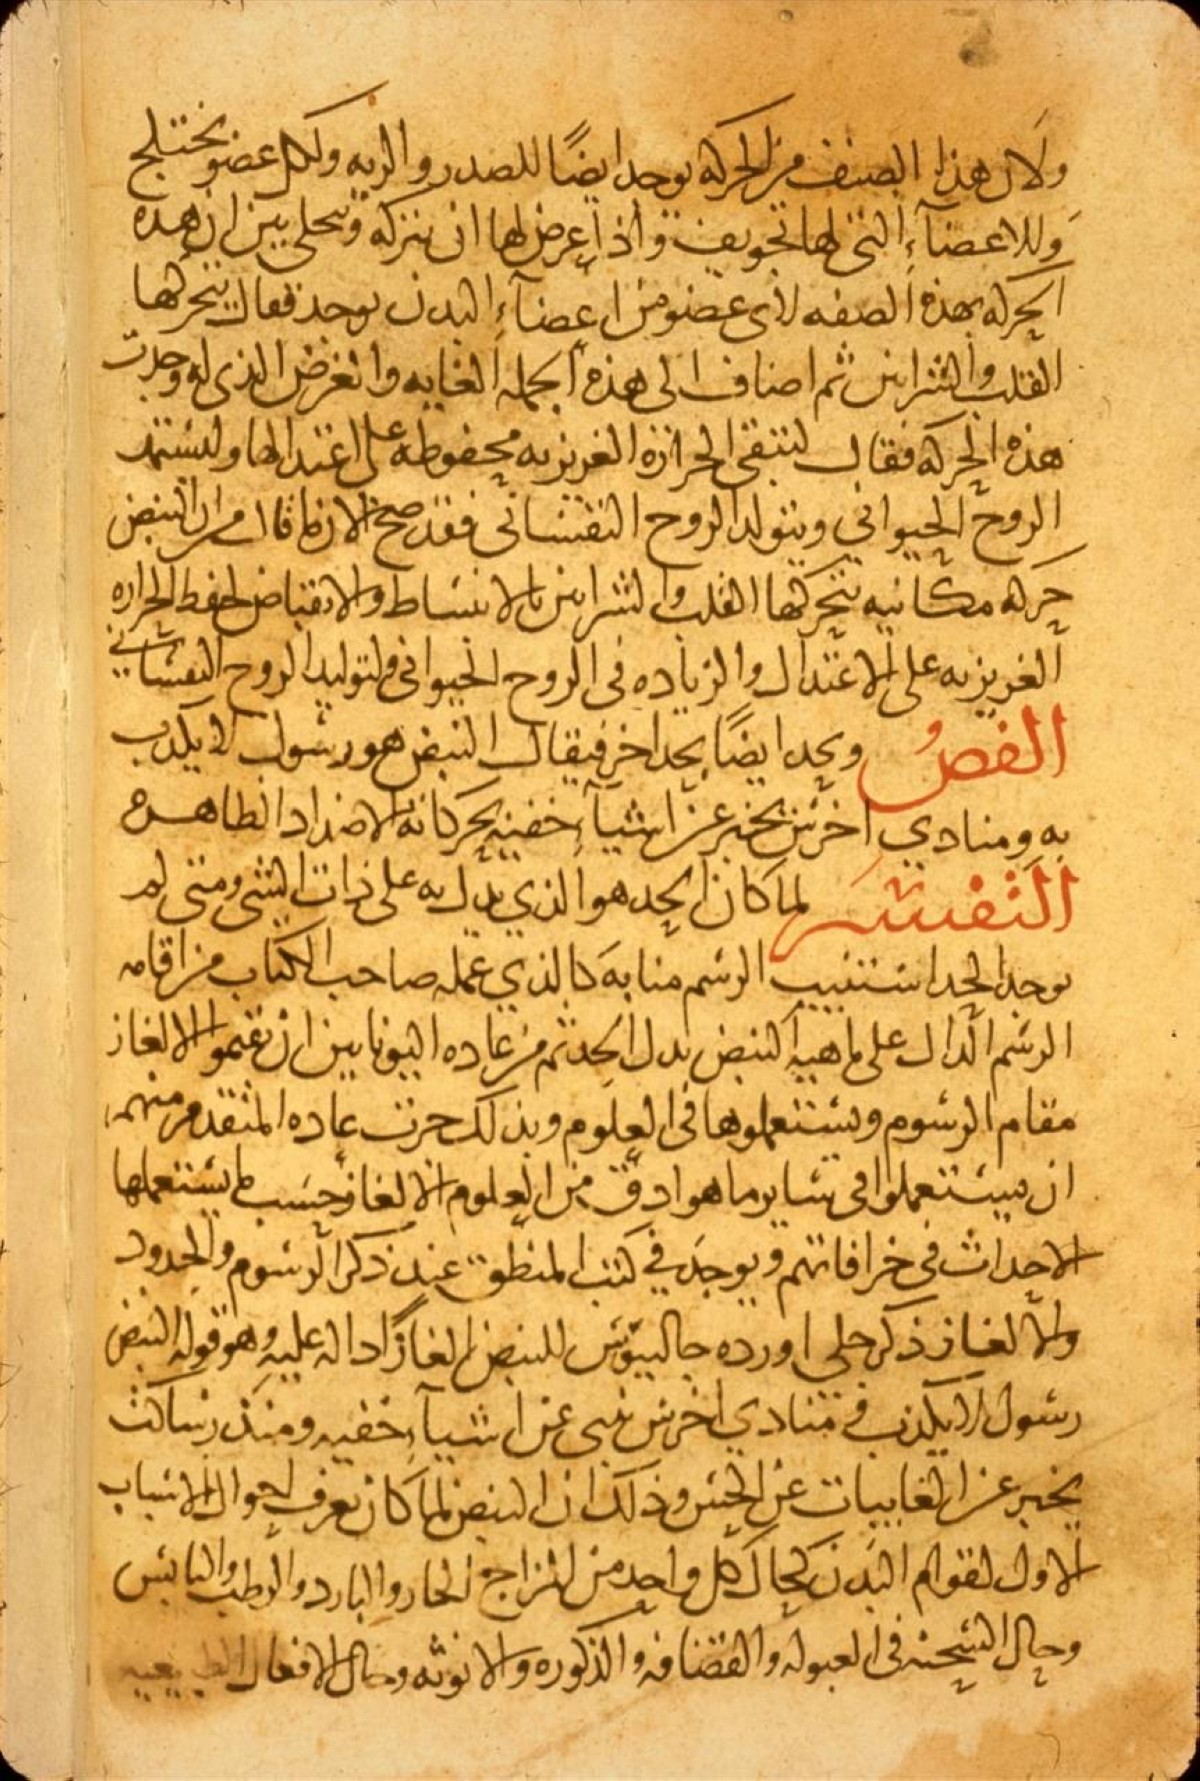 ولان هذا الصنف من الحركه يوجد ايضًا للصدر والريه ولكل عضو يختلج
وللاعضآءِ التى لها تجويف واذا عرض لها ان تتركه وتتحلى بين ان هذه
الحركه بهذه الصفه لاى عضو من اعضآءِ البدن يوجد فقال يتحركها
القلب والشرايين ثم اضاف الى هذه الجمله الغايه والغرض الذى له وجدت
هذه الحركه فقال لتبقى الحرارة الغريزيه محفوظه على اعتدالها وليستمد
الروح الحيوانى ويتولد الروح النفسانى فقد صح الان ما قاله من ان النبض
حركه مكانيه يتحركها القلب والشرايين بالانبساط والانقباض لحفظ الحراره
الغريزيه على الاعتدال والزياده فى الروح الحيوانى ولتوليد الروح النفسانى
الفص ويحد ايضًا بحد اخر فيقال النبض هو رسول لا يكذب
به ومنادي اخرس يخبر عن اشيآءِ خفيه بحركاته الاضداد الظاهره
التفسير لما كان الحد هو الذي يدل به على ذات الشى ومتى لم
يوجد الحد استنيب الرسم منابه كالذي عمله صاحب الكتاب من اقامه
الرسم الدال على ماهيه النبض بدل الحد ثم من عاده اليونانيين ان يقيموا الالغاز
مقام الرسوم ويستعملوها فى العلوم وبذلك جرت عاده المتقدم منهم
ان يستعملوا فى ساير ما هو ادق من العلوم الالغاز حسب ما يستعملها
الاحداث فى خرافاتهم ويوجد في كتب المنطق عند ذكر الرسوم والحدود
والالغاز ذكر جلى اورده جالينوس للنبض الغازًا داله عليه وهو قوله النبض
رسول لا يكذب في منادي اخرس ينبى عن اشيآءِ خفيه ومنذر ساكت
يخبر عن الغايبات عن الحس وذلك ان النبض لما كان يعرف احوال الاسباب
الاول لقوام البدن كحال كل واحد من المزاج الحار والبارد والرطب واليابس
وحال السحنه فى العبوله والقضافه والذكوره والانوثه وحال الافعال الطبيعيه